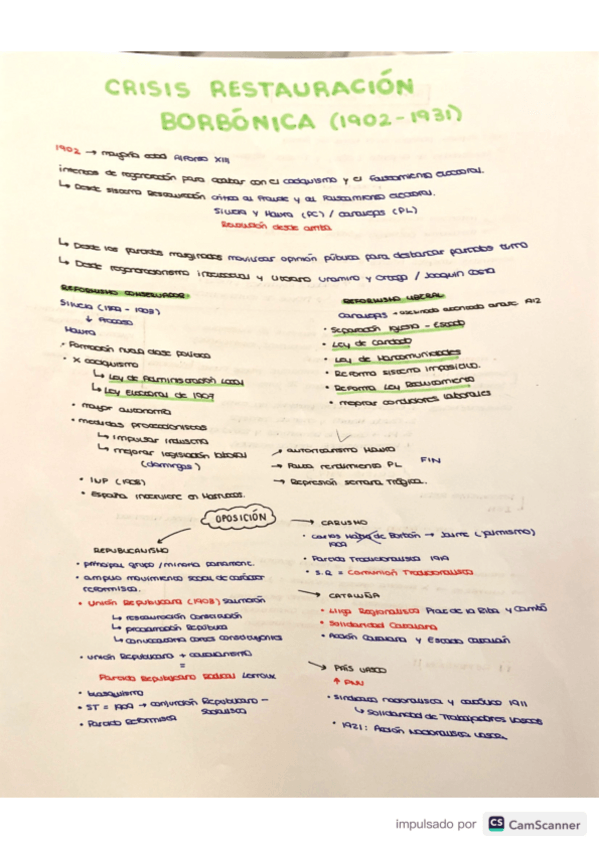 CRISIS RESTAURACIÓN
BORBÓNICA (1902-1931)
1902 → mayoría edad Alfonso XIII
intentos de regeneración para acabar con el caciquismo y el falseamiento electoral.
↳ Desde sistema Restauración crítica al fraude y al falseamiento electoral.
Silvela y Maura (PC) / Canalejas (PL)
Revolución desde arriba
↳ Desde los partidos marginados movilizar opinión pública para desbancar partidos turno
↳ Desde regeneracionismo intelectual y literario Unamuno y Ortega / Joaquín Costa
REFORMISMO CONSERVADOR
Silvela (1899 - 1903)
↓ Fracaso
Maura
· Formación nueva clase política
· X caciquismo
↳ Ley de Administración Local
↳ Ley Electoral de 1907
· mayor autonomía
· medidas proteccionistas
↳ impulsar industria
↳ mejorar legislación laboral
(domingos)
· INP (1908)
· España interviene en Marruecos.
REFORMISMO LIBERAL
Canalejas → asesinado anarq. 1912
· Separación Iglesia - Estado
· Ley de Candado
· Ley de Mancomunidades
· Reforma sistema impositivo.
· Reforma Ley Reclutamiento
· mejorar condiciones laborales
→ autoritarismo Maura
→ Falta rendimiento PL FIN
→ Represión semana Trágica.
OPOSICIÓN
REPUBLICANISMO
· principal grupo / minoría parlament.
· amplio movimiento social de carácter
reformista.
· Unión Republicana (1903) Salmerón
↳ restauración Constitución
↳ proclamación República
↳ convocatoria cortes constituyentes
· unión Republicana + catalanismo
=
Partido Republicano Radical Lerroux
· blasquismo
· ST = 1909 → conjunción Republicano -
Socialista
· Partido Reformista
→ CARLISMO
· Carlos de Borbón → Jaime (jaimismo)
1909
· Partido Tradicionalista 1919
· S.R = Comunión Tradicionalista
→ CATALUÑA
· Lliga Regionalista Prat de la Riba y Cambó
· Solidaridad Catalana
· Acción Catalana y Estado Catalán
→ PAÍS VASCO
↑ PNV
· Sindicato nacionalista y católico 1911
↳ Solidaridad de Trabajadores Vascos
· 1921: Acción Nacionalista Vasca.
impulsado por CS CamScanner